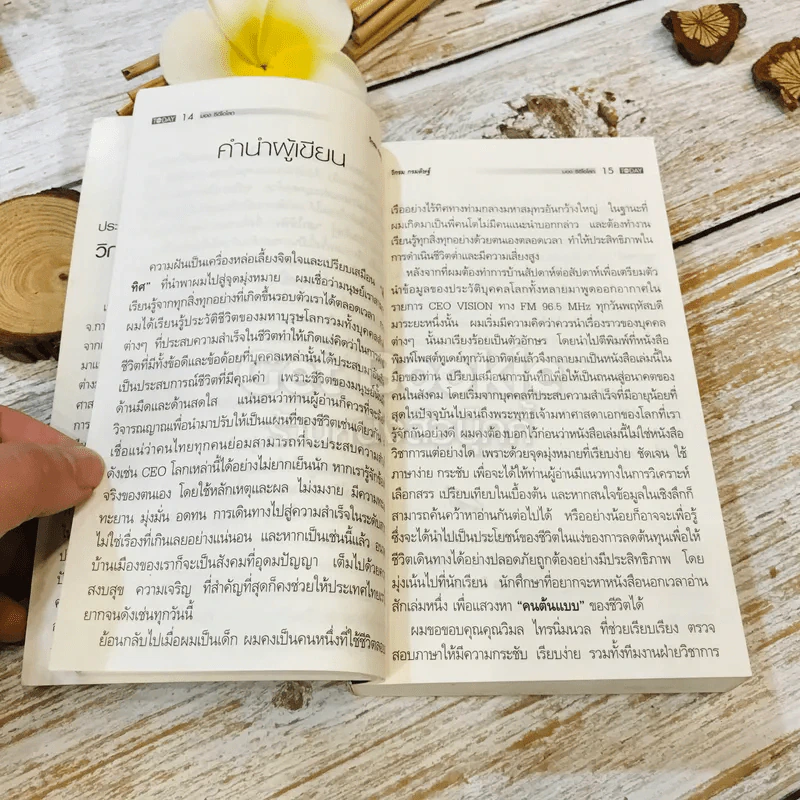 TODAY 14 มอง ซีอีโอโลก
คำนำผู้เขียน
ความฝันเป็นเครื่องหล่อเลี้ยงจิตใจและเปรียบเสมือน
ทิศ" ที่นำพาผมไปสู่จุดมุ่งหมาย ผมเชื่อว่ามนุษย์เรา
เรียนรู้จากทุกสิ่งทุกอย่างที่เกิดขึ้นรอบตัวเราได้ตลอดเวลา
ผมได้เรียนรู้ประวัติชีวิตของมหาบุรุษโลกรวมทั้งบุคคล
ต่างๆ ที่ประสบความสำเร็จในชีวิตทำให้เกิดแง่คิดว่าใน
ชีวิตที่มีทั้งข้อดีและข้อด้อยที่บุคคลเหล่านั้นได้ประสบมา
เป็นประสบการณ์ชีวิตที่มีคุณค่า เพราะชีวิตของมนุษย์
ด้านมืดและด้านสดใส แน่นอนว่าท่านผู้อ่านก็ควรที่จะ
วิจารณญาณเพื่อนำมาปรับให้เป็นแผนที่ของชีวิตเช่นเดียวกับ
เชื่อแน่ว่าคนไทยทุกคนย่อมสามารถที่จะประสบความสำเร็จ
ดังเช่น CEO โลกเหล่านี้ได้อย่างไม่ยากเย็นนัก หากเรารู้จัก
จริงของตนเอง โดยใช้หลักเหตุและผล ไม่งมงาย มีความ
ทะยาน มุ่งมั่น อดทน การเดินทางไปสู่ความสำเร็จในระดับ
ไม่ใช่เรื่องที่เกินเลยอย่างแน่นอน และหากเป็นเช่นนี้แล้ว
บ้านเมืองของเราก็จะเป็นสังคมที่อุดมปัญญา เต็มไปด้วย
สงบสุข ความเจริญ ที่สำคัญที่สุดก็คงช่วยให้ประเทศไทย
ยากจนดังเช่นทุกวันนี้
ย้อนกลับไปเมื่อผมเป็นเด็ก ผมคงเป็นคนหนึ่งที่ใช้ชีวิต
วิกรม กรมดิษฐ์ มอง ซีอีโอโลก 15 TODAY
เรืออย่างไร้ทิศทางท่ามกลางมหาสมุทรอันกว้างใหญ่ ในฐานะที่
ผมเกิดมาเป็นพี่คนโตไม่มีคนแนะนำบอกกล่าว และต้องทำงาน
เรียนรู้ทุกสิ่งทุกอย่างด้วยตนเองตลอดเวลา ทำให้ประสิทธิภาพใน
การดำเนินชีวิตต่ำและมีความเสี่ยงสูง
หลังจากที่ผมต้องทำการบ้านสัปดาห์ต่อสัปดาห์เพื่อเตรียมตัว
นำข้อมูลของประวัติบุคคลโลกทั้งหลายมาพูดออกอากาศใน
รายการ CEO VISION ทาง FM 96.5 MHz ทุกวันพฤหัสบดี
มาระยะหนึ่งนั้น ผมเริ่มมีความคิดว่าควรนำเรื่องราวของบุคคล
ต่างๆ นั้นมาเรียงร้อยเป็นตัวอักษร โดยนำไปตีพิมพ์ที่หนังสือ
พิมพ์โพสต์ทูเดย์ทุกวันอาทิตย์แล้วจึงกลายมาเป็นหนังสือเล่มนี้ใน
มือของท่าน เปรียบเสมือนการบ้านเพื่อให้เป็นถนนสู่อนาคตของ
คนในสังคม โดยเริ่มจากบุคคลที่ประสบความสำเร็จที่มีอายุน้อยที่
สุดในปัจจุบันไปจนถึงพระพุทธเจ้ามหาศาสดาเอกของโลกที่เรา
รู้จักกันอย่างดี ผมคงต้องบอกไว้ก่อนว่าหนังสือเล่มนี้ไม่ใช่หนังสือ
วิชาการแต่อย่างใด เพราะด้วยจุดมุ่งหมายที่เรียบง่าย ชัดเจน ใช้
ภาษาง่าย กระชับ เพื่อจะได้ให้ท่านผู้อ่านมีแนวทางในการวิเคราะห์
เลือกสรร เปรียบเทียบในเบื้องต้น และหากสนใจข้อมูลในเชิงลึกก็
สามารถค้นคว้าหาอ่านกันต่อไปได้ หรืออย่างน้อยก็อาจจะเพื่อรู้
ซึ่งจะได้นำไปเป็นประโยชน์ของชีวิตในแง่ของการลดต้นทุนเพื่อให้
ชีวิตเดินทางได้อย่างปลอดภัยถูกต้องอย่างมีประสิทธิภาพ โดย
มุ่งเน้นไปที่นักเรียน นักศึกษาที่อยากจะหาหนังสือนอกเวลาอ่าน
สักเล่มหนึ่ง เพื่อแสวงหา "คนต้นแบบ" ของชีวิตได้
ผมขอขอบคุณคุณวิมล ไทรนิ่มนวล ที่ช่วยเรียบเรียง ตรวจ
สอบภาษาให้มีความกระชับ เรียบง่าย รวมทั้งทีมงานฝ่ายวิชาการ